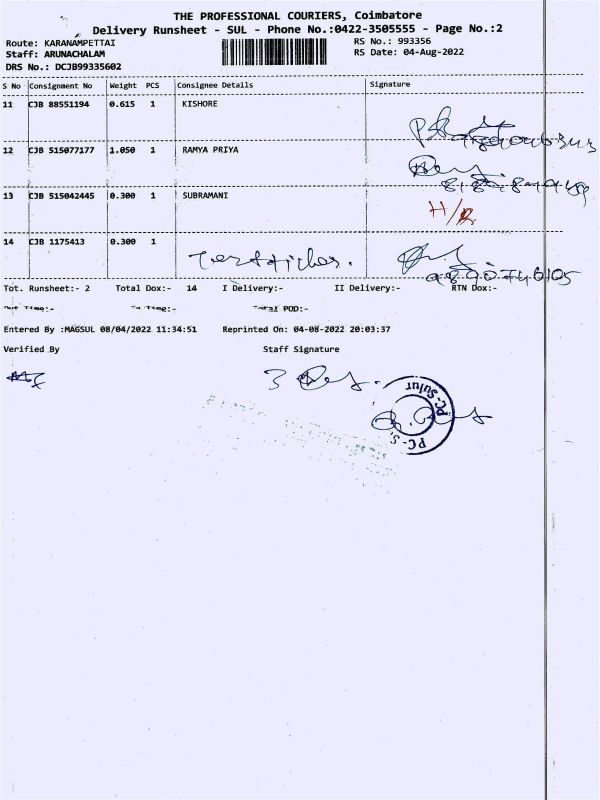 THE PROFESSIONAL COURIERS, Coimbatore
Delivery Runsheet - SUL - Phone No.:0422-3505555 - Page No.:2
Route: KARANAMPETTAI
RS No.: 993356
Staff: ARUNACHALAM
RS Date: 04-Aug-2022
DRS No.: DCJB99335602
S No Consignment No Weight PCS Consignee Details Signature
11 CJB 88551194 0.615 1 KISHORE
12 CJB 515077177 1.050 1 RAMYA PRIYA
13 CJB 515042445 0.300 1 SUBRAMANI H/R
14 CJB 1175413 0.300 1
Tot. Runsheet:- 2 Total Dox:- 14 I Delivery:- II Delivery:- RTN Dox:-
Out Time:- In Time:- Total POD:-
Entered By :MAGSUL 08/04/2022 11:34:51 Reprinted On: 04-08-2022 20:03:37
Verified By Staff Signature
PC-Sulur